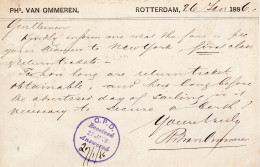 PHs. VAN OMMEREN. ROTTERDAM, 26 Jan 1886.
Gentlemen
Kindly inform me what the fare is per
your Steamers to New York, first class
return tickets.
For how long are return tickets
obtainable, and how long before
the advertised day of sailing is it
necessary to secure a berth?
Yours truly
PhsvanOmmeren
O.P.D.
Received
Answered
27/1/86